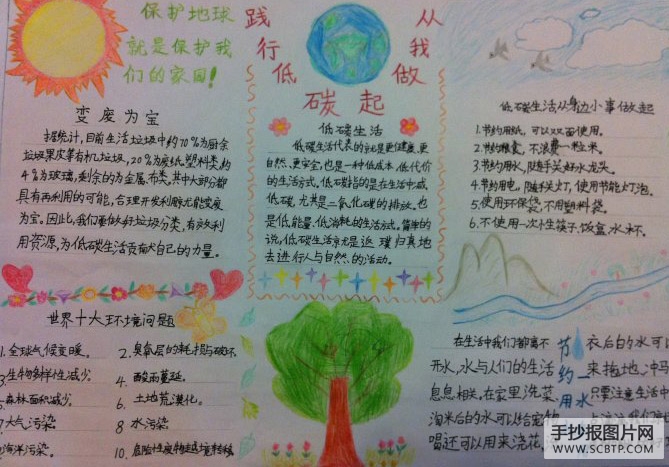 保护地球
就是保护我
们的家园!
践行低碳
从我做起
变废为宝
据统计,目前生活垃圾中约70%为厨余
垃圾果皮等有机垃圾,20%废纸塑料类,约
4%为玻璃,剩余的为金属、布类。其中大部分都
具有再利用的可能,合理开发利用就能变废
为宝。因此,我们要做好垃圾分类,有效利
用资源,为低碳生活贡献自己的力量。
低碳生活
低碳生活代表的就是更健康、更
自然、更安全,也是一种低成本、低代价
的生活方式。低碳指的是在生活中减
低碳,尤其是二氧化碳的排放。也
是低能量、低消耗的生活方式。简单的
说,低碳生活就是返璞归真地
去进行人与自然的活动。
低碳生活从身边小事做起
1.节约用纸,可以双面使用。
2.节约粮食,不浪费一粒米。
3.节约用水,随手关好水龙头。
4.节约用电,随手关灯,使用节能灯泡。
5.使用环保袋,不用塑料袋。
6.不使用一次性筷子,饭盒,水杯。
世界十大环境问题
1.全球气候变暖。
2.臭氧层的耗损与破坏
3生物多样性减少。
4.酸雨蔓延。
5.森林面积减少。
6.土地荒漠化。
7大气污染
8水污染
海洋污染。
10.危险性废物越境转移
节约用水
在生活中我们都离不
开水,水与人们的生活
息息相关。在家里洗菜、
淘米后的水可以给宠物
喝还可以用来浇花,
衣后的水可以
来拖地、冲马
只要注意生活中
手抄报图片网
WWW.SCBTP.COM